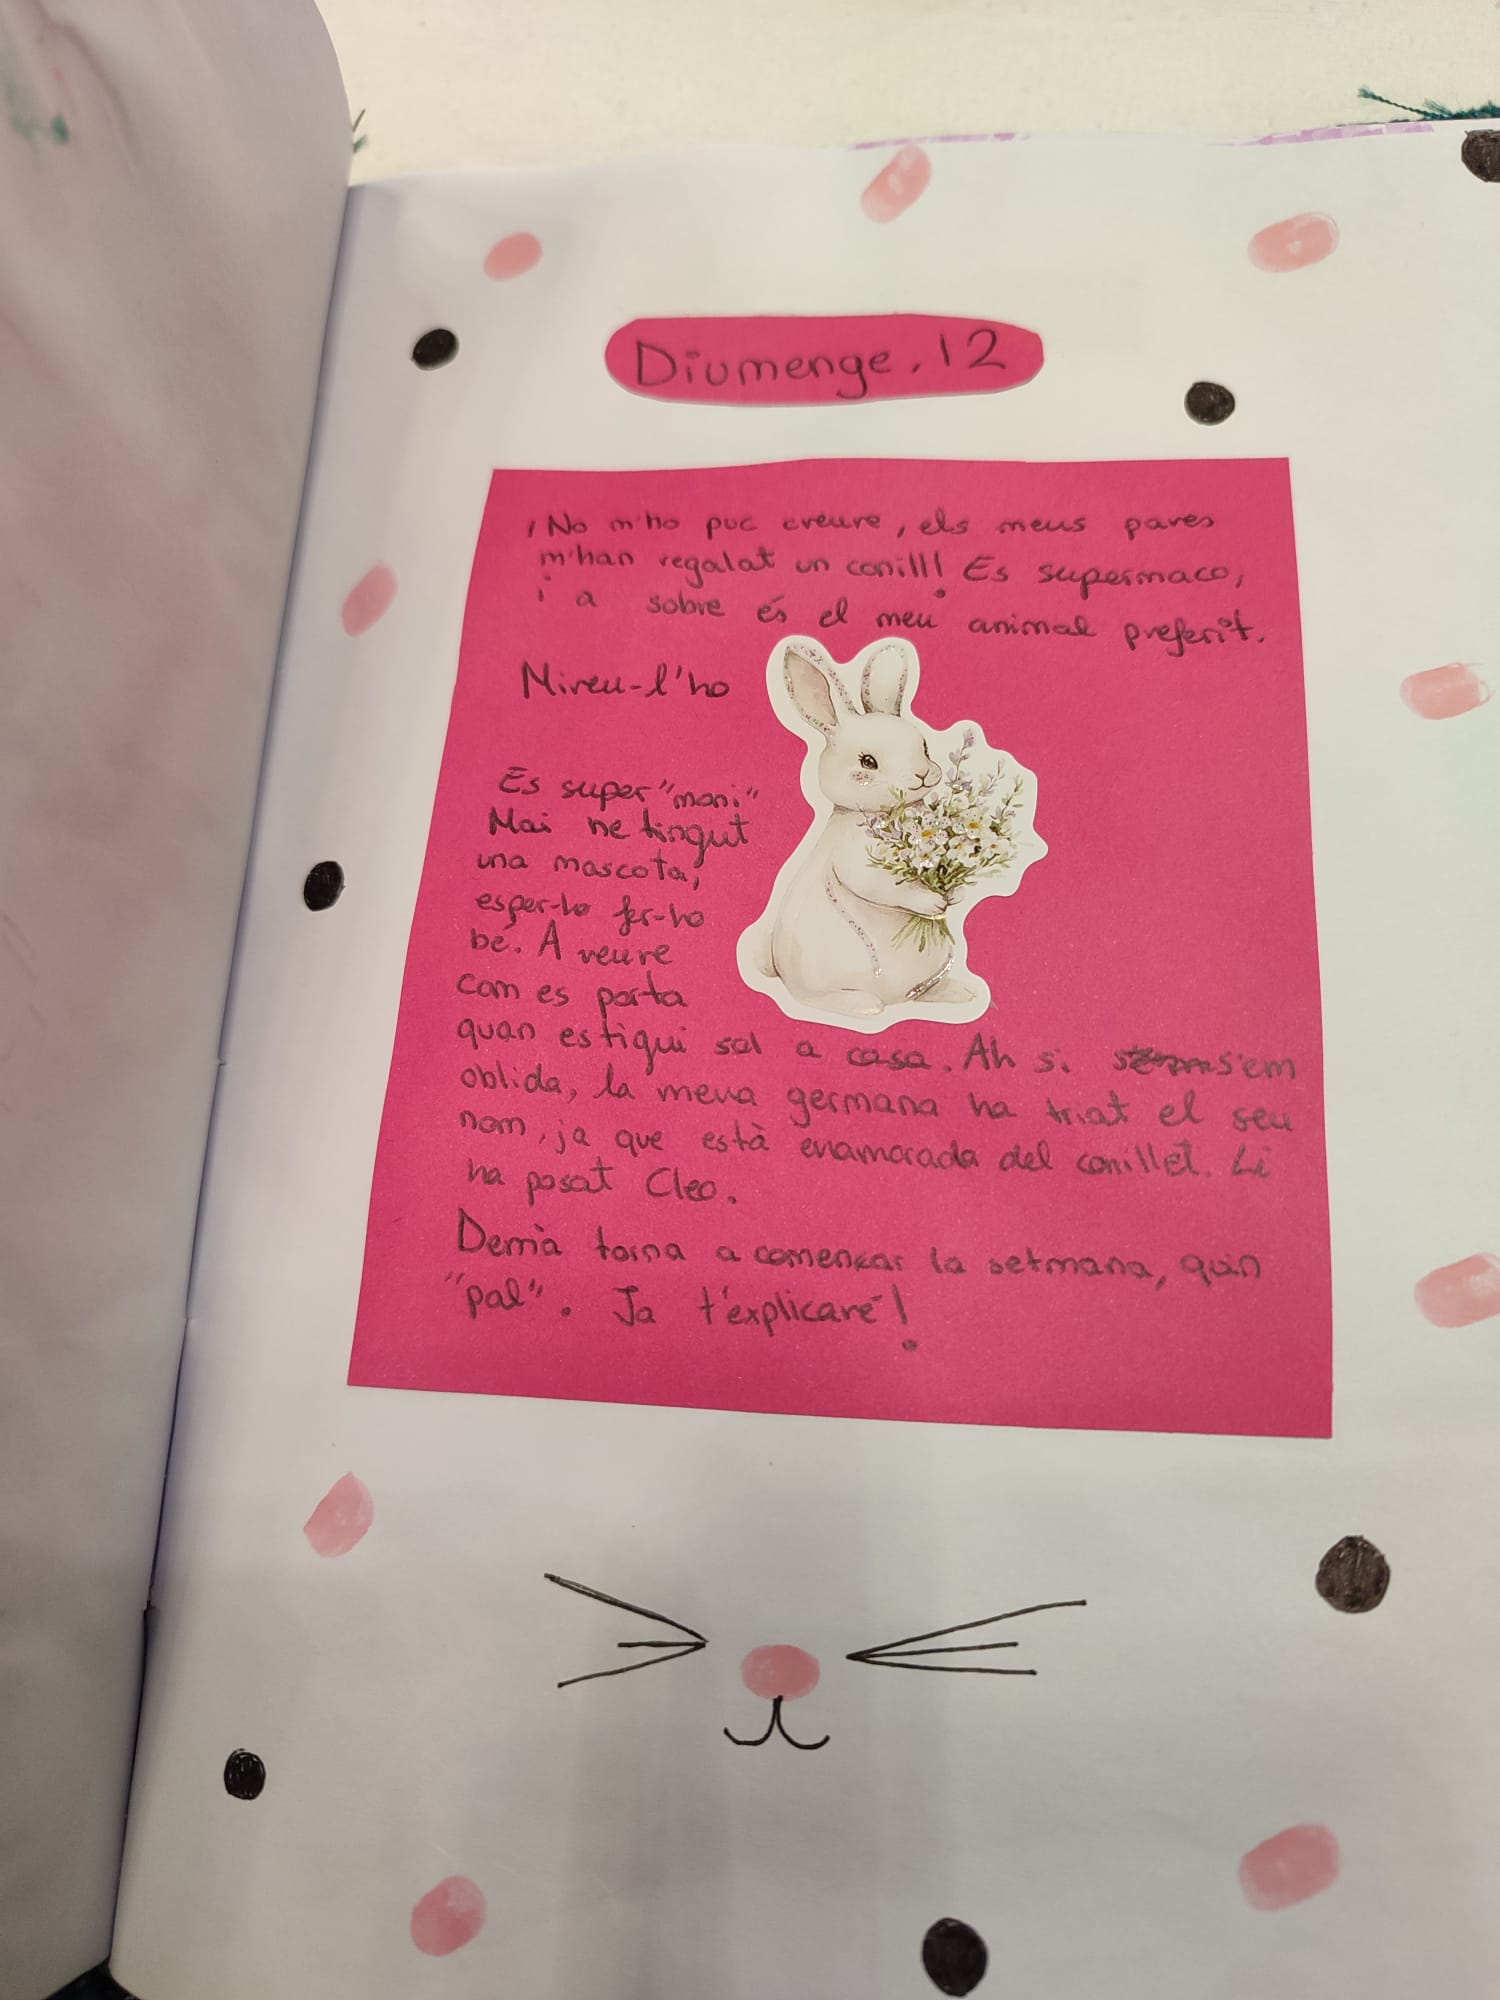 Diumenge, 12
¡No m'ho puc creure, els meus pares
m'han regalat un conill! Es supermaco,
i a sobre és el meu animal preferit.
Mireu-l'ho
Es super "moni"
Mai he tingut
una mascota,
esper-ho fer-ho
bé. A veure
com es porta
quan estigui sol a casa. Ah si s'em
oblida, la meva germana ha triat el seu
nom, ja que està enamorada del conillet. Li
ha posat Cleo.
Demà torna a comenzar la setmana, quin
"pal". Ja t'explicaré!